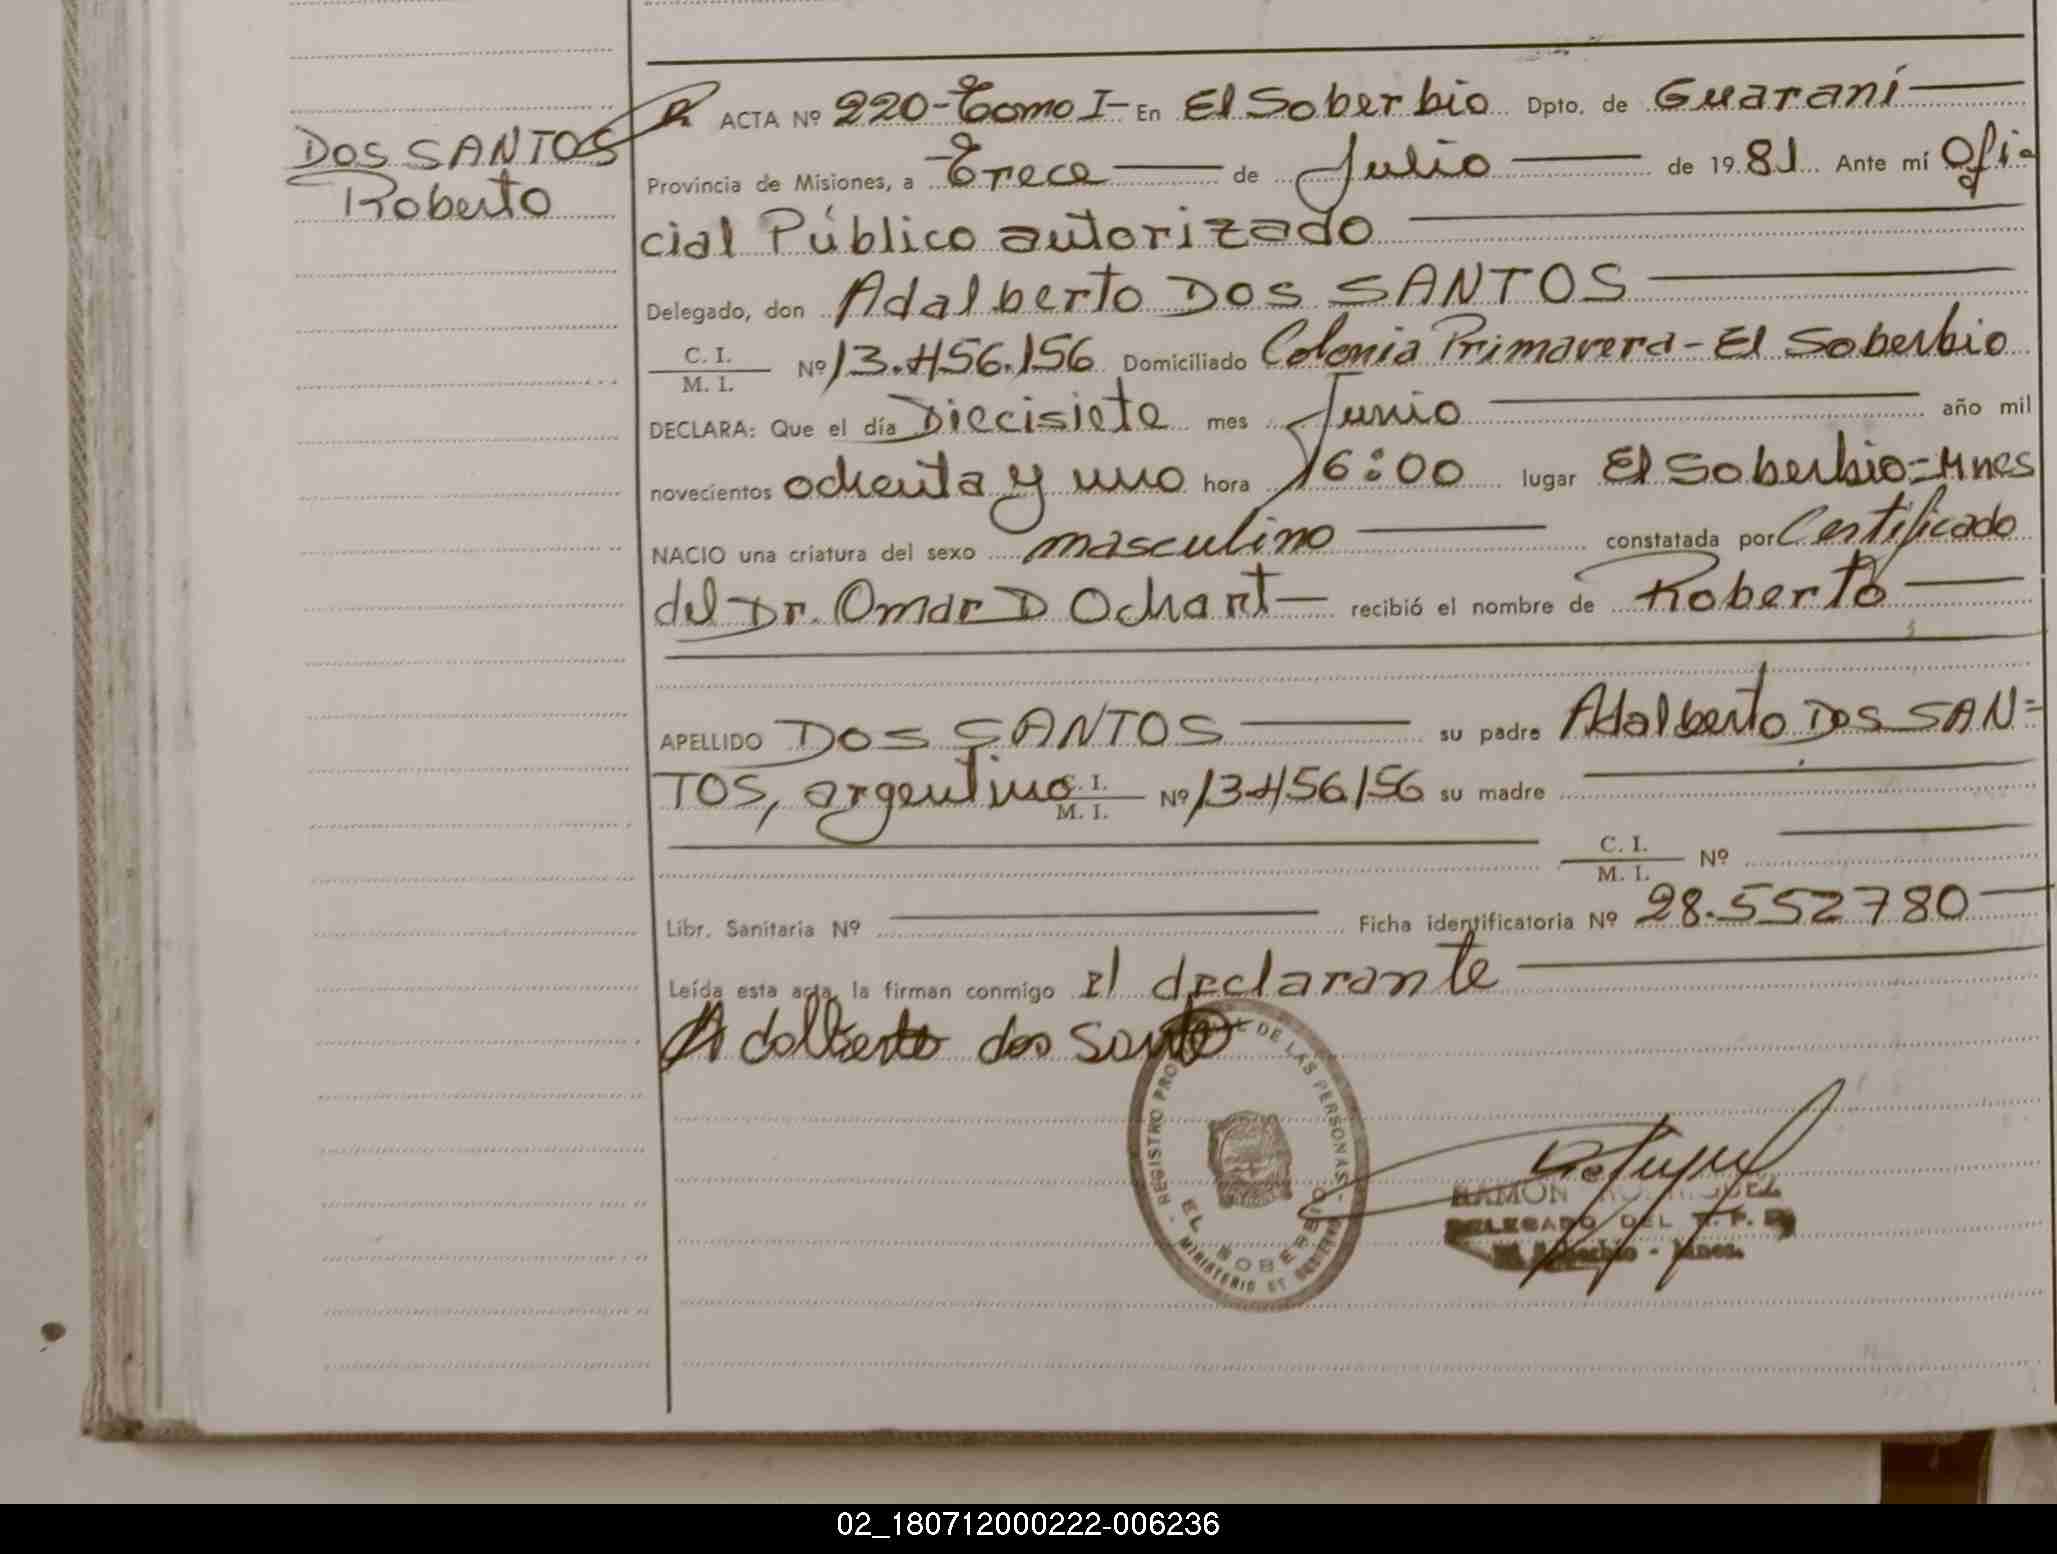 DOS SANTOS
Roberto
ACTA Nº 220-Tomo I- En El Soberbio Dpto. de Guaraní
Provincia de Misiones, a Trece de Julio de 1981 Ante mí Ofi-
cial Público autorizado
Delegado, don Adalberto DOS SANTOS
C. I.
M. I.
Nº 13.456.156 Domiciliado Colonia Primavera - El Soberbio
DECLARA: Que el día Diecisiete mes Junio año mil
novecientos ochenta y uno hora 16:00 lugar El Soberbio=Mnes
NACIO una criatura del sexo masculino constatada por Certificado
del Dr. Omar D Ochart recibió el nombre de Roberto
APELLIDO DOS SANTOS su padre Adalberto DOS SAN=
TOS, argentino C. I. M. I. Nº 13.456.156 su madre
C. I.
M. I.
Nº
Libr. Sanitaria Nº Ficha identificatoria Nº 28.552780
Leída esta acta, la firman conmigo el declarante
Adalberto dos Santo
REGISTRO DE LAS PERSONAS
EL SOBERBIO
MINISTERIO DE GOBIERNO
RAMON
DELEGADO DEL R. P. P.
El Soberbio - Mnes.
02_180712000222-006236